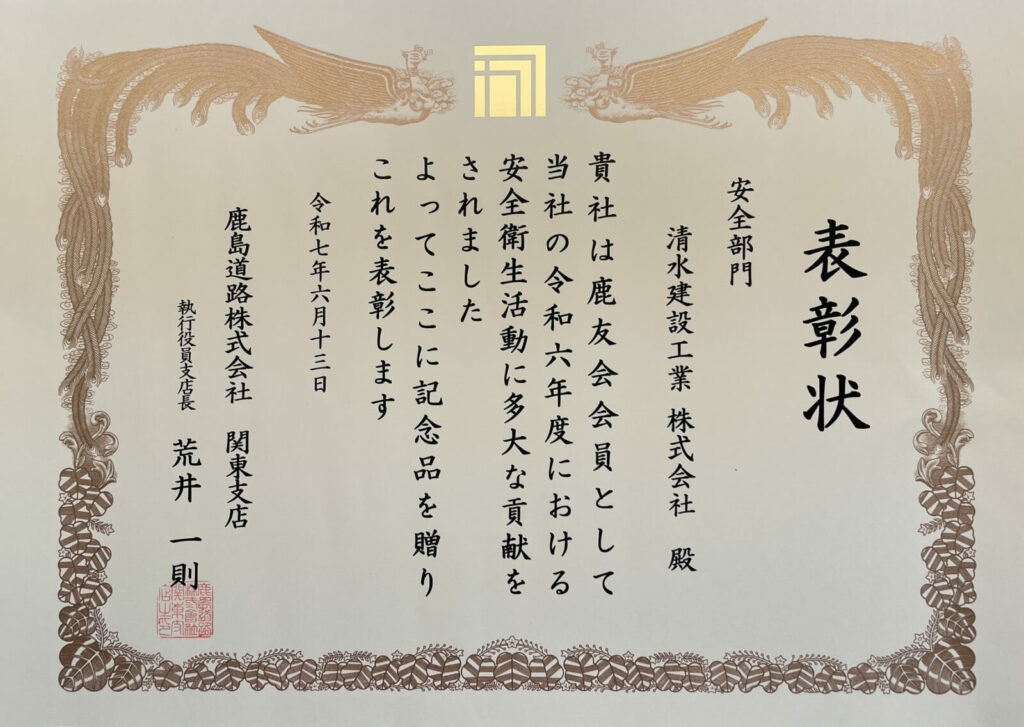 表彰状
安全部門
清水建設工業 株式会社 殿
貴社は鹿友会会員として
当社の令和六年度における
安全衛生活動に多大な貢献を
されました
よってここに記念品を贈り
これを表彰します
令和七年六月十三日
鹿島道路株式会社 関東支店
執行役員支店長 荒井 一則